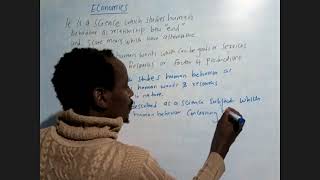 Economics
It is a science which studies human
behaviour as relationship btw "end"
and scarce means which have alternative
human wants which can be goods or services
Resources or factor of production
studies human behavior as
human wants & resources
in nature.
described as a science subject which
human behavior concerning